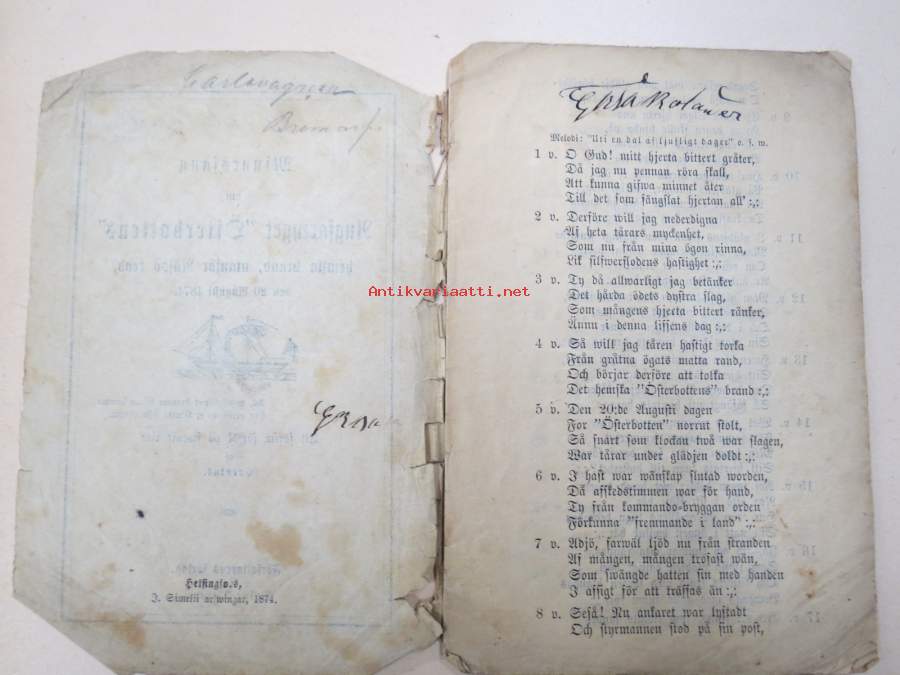 Carlsvagnen
Helsingfors,
J. Simelii arfwingar, 1874.
Antikvariaatti.net
Melodi: "Uti en dal af ljufligt dager" o. s. w.
1 v. O Gud! mitt hjerta bittert gråter,
Då jag nu pennan röra skall,
Att kunna gifwa minnet åter
Till det som fängslat hjertan all' :,:
2 v. Derföre will jag nederdigna
Af heta tårars myckenhet,
Som nu från mina ögon rinna,
Lik silfwerflodens hastighet :,:
3 v. Ty då allwarligt jag betänker
Det hårda ödets dystra slag,
Som mångens hjerta bittert ränker,
Ännu i denna lifsens dag :,:
4 v. Så will jag tåren hastigt torka
Från gråtna ögats matta rand,
Och börjar derföre att tolka
Det hemska "Österbottens" brand :,:
5 v. Den 20:de Augusti dagen
For "Österbotten" norrut stolt,
Så snart som klockan twå war slagen,
War tårar under glädjen doldt :,:
6 v. I hast war wänskap slutad worden,
Då afskedstimmen war för hand,
Ty från kommando-bryggan orden
Förkunna "fremmande i land" :,:
7 v. Adjö, farwäl ljöd nu från stranden
Af mången, mången trofast wän,
Som swängde hatten sin med handen
I afsigt för att träffas än :,:
8 v. Seså! Nu ankaret war lyftadt
Och styrmannen stod på sin post,